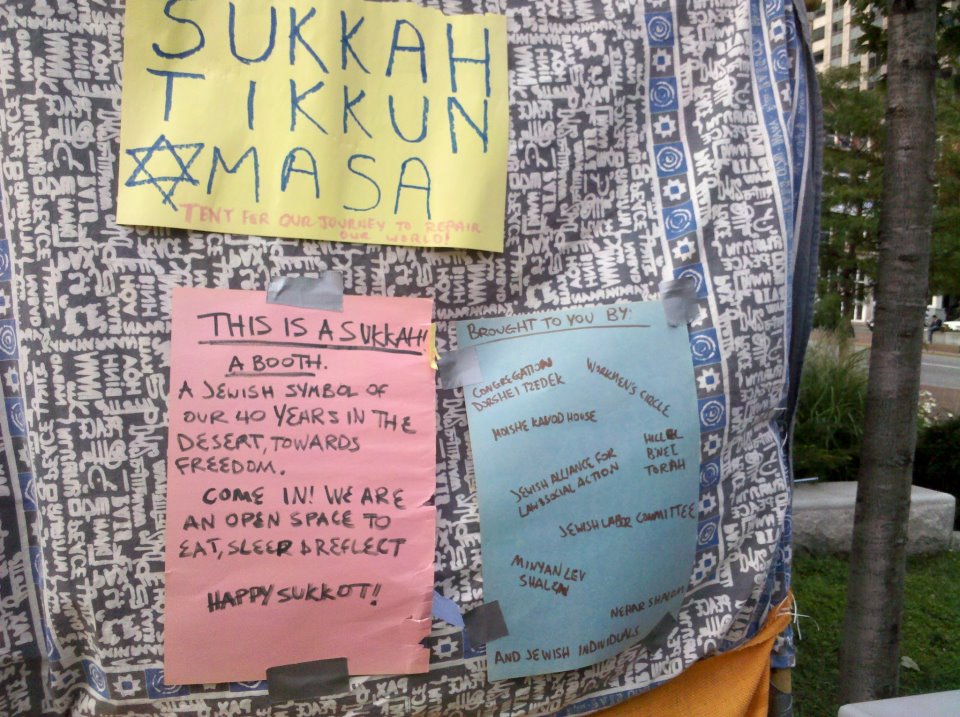 SUKKAH
TIKKUN
MASA
TENT FOR OUR JOURNEY TO REPAIR
OUR WORLD!
THIS IS A SUKKAH!
A BOOTH.
A JEWISH SYMBOL OF
OUR 40 YEARS IN THE
DESERT, TOWARDS
FREEDOM.
COME IN! WE ARE
AN OPEN SPACE TO
EAT, SLEEP & REFLECT
HAPPY SUKKOT!
BROUGHT TO YOU BY:
CONGREGATION
DORSHEI TZEDEK
WORKMEN'S CIRCLE
MOISHE KAVOD HOUSE
HILLEL
B'NEI
TORAH
JEWISH ALLIANCE FOR
LAW & SOCIAL ACTION
JEWISH LABOR COMMITTEE
MINYAN LEV
SHALEM
NEHAR SHALOM
AND JEWISH INDIVIDUALS